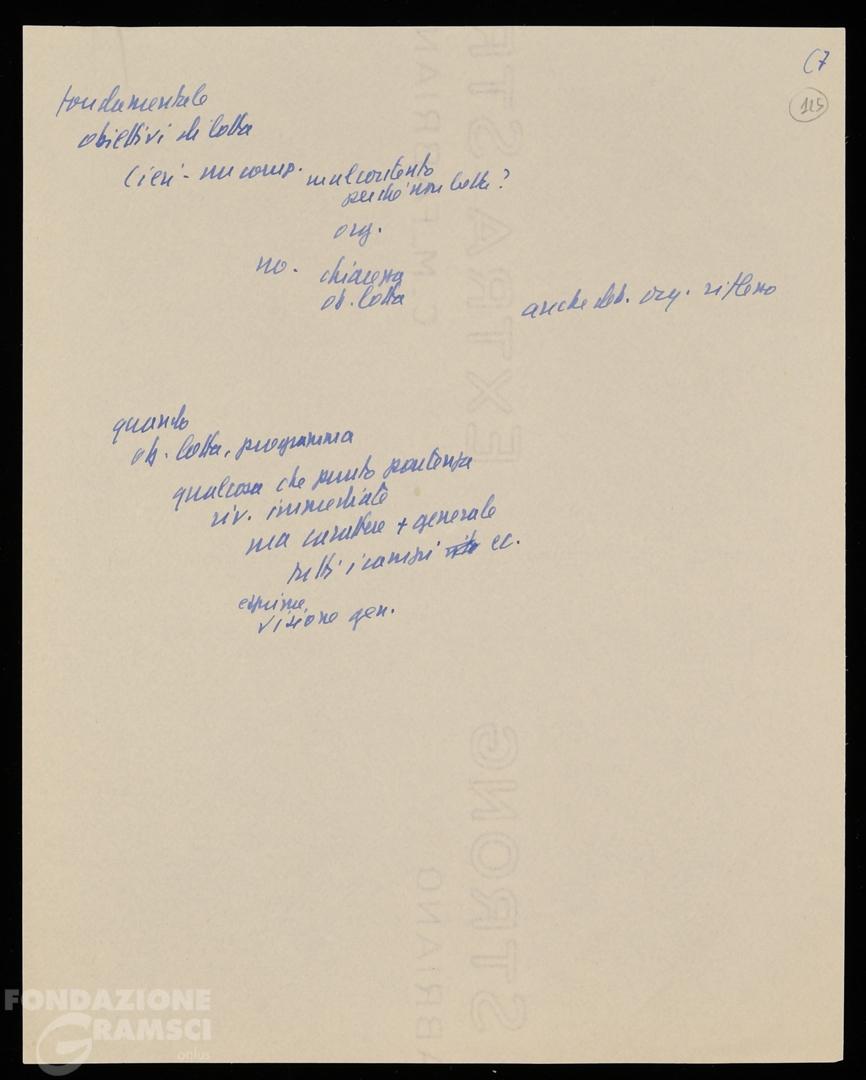 C7
115
fondamentale
obiettivi di lotta
(ieri - un comp. malcontento
perché non lotta?
org.
no. chiarezza
ob. lotta
anche deb. org. riflesso
quando
ob. lotta, programma
qualcosa che punto partenza
riv. immediate
ma carattere + generale
tutti i campi ec.
esprime
visione gen.
EXTRA STR
C.M.FABRIAN
STRONG
ABRIANO
FONDAZIONE
GRAMSCI
onlus